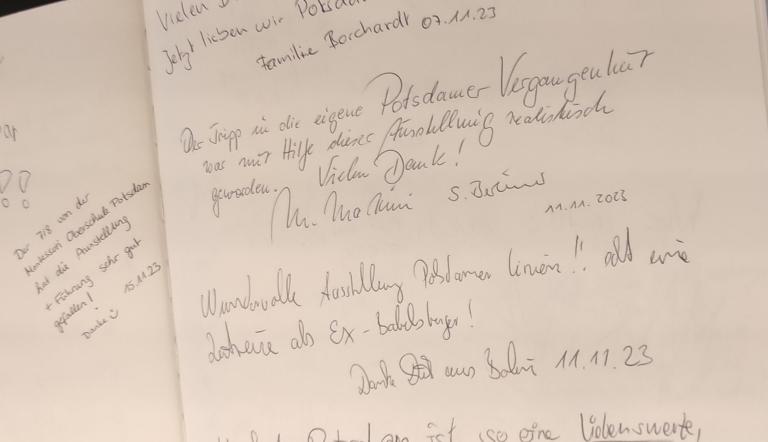 Der 7/8 von der
Montessori Oberschule Potsdam
hat die Ausstellung
+ Führung sehr gut
gefallen!
Danke ☺ 15.11.23
Vielen
Jetzt lieben wir Potsdam
Familie Borchardt 07.11.23
Der Tripp in die eigene Potsdamer Vergangenheit
war mit Hilfe dieser Ausstellung realistisch
geworden. Vielen Dank!
M. S.
11.11.2023
Wundervolle Ausstellung Potsdamer Linien!!
als Ex-Babelsberger!
Danke aus 11.11.23
ist so eine liebenswerte,